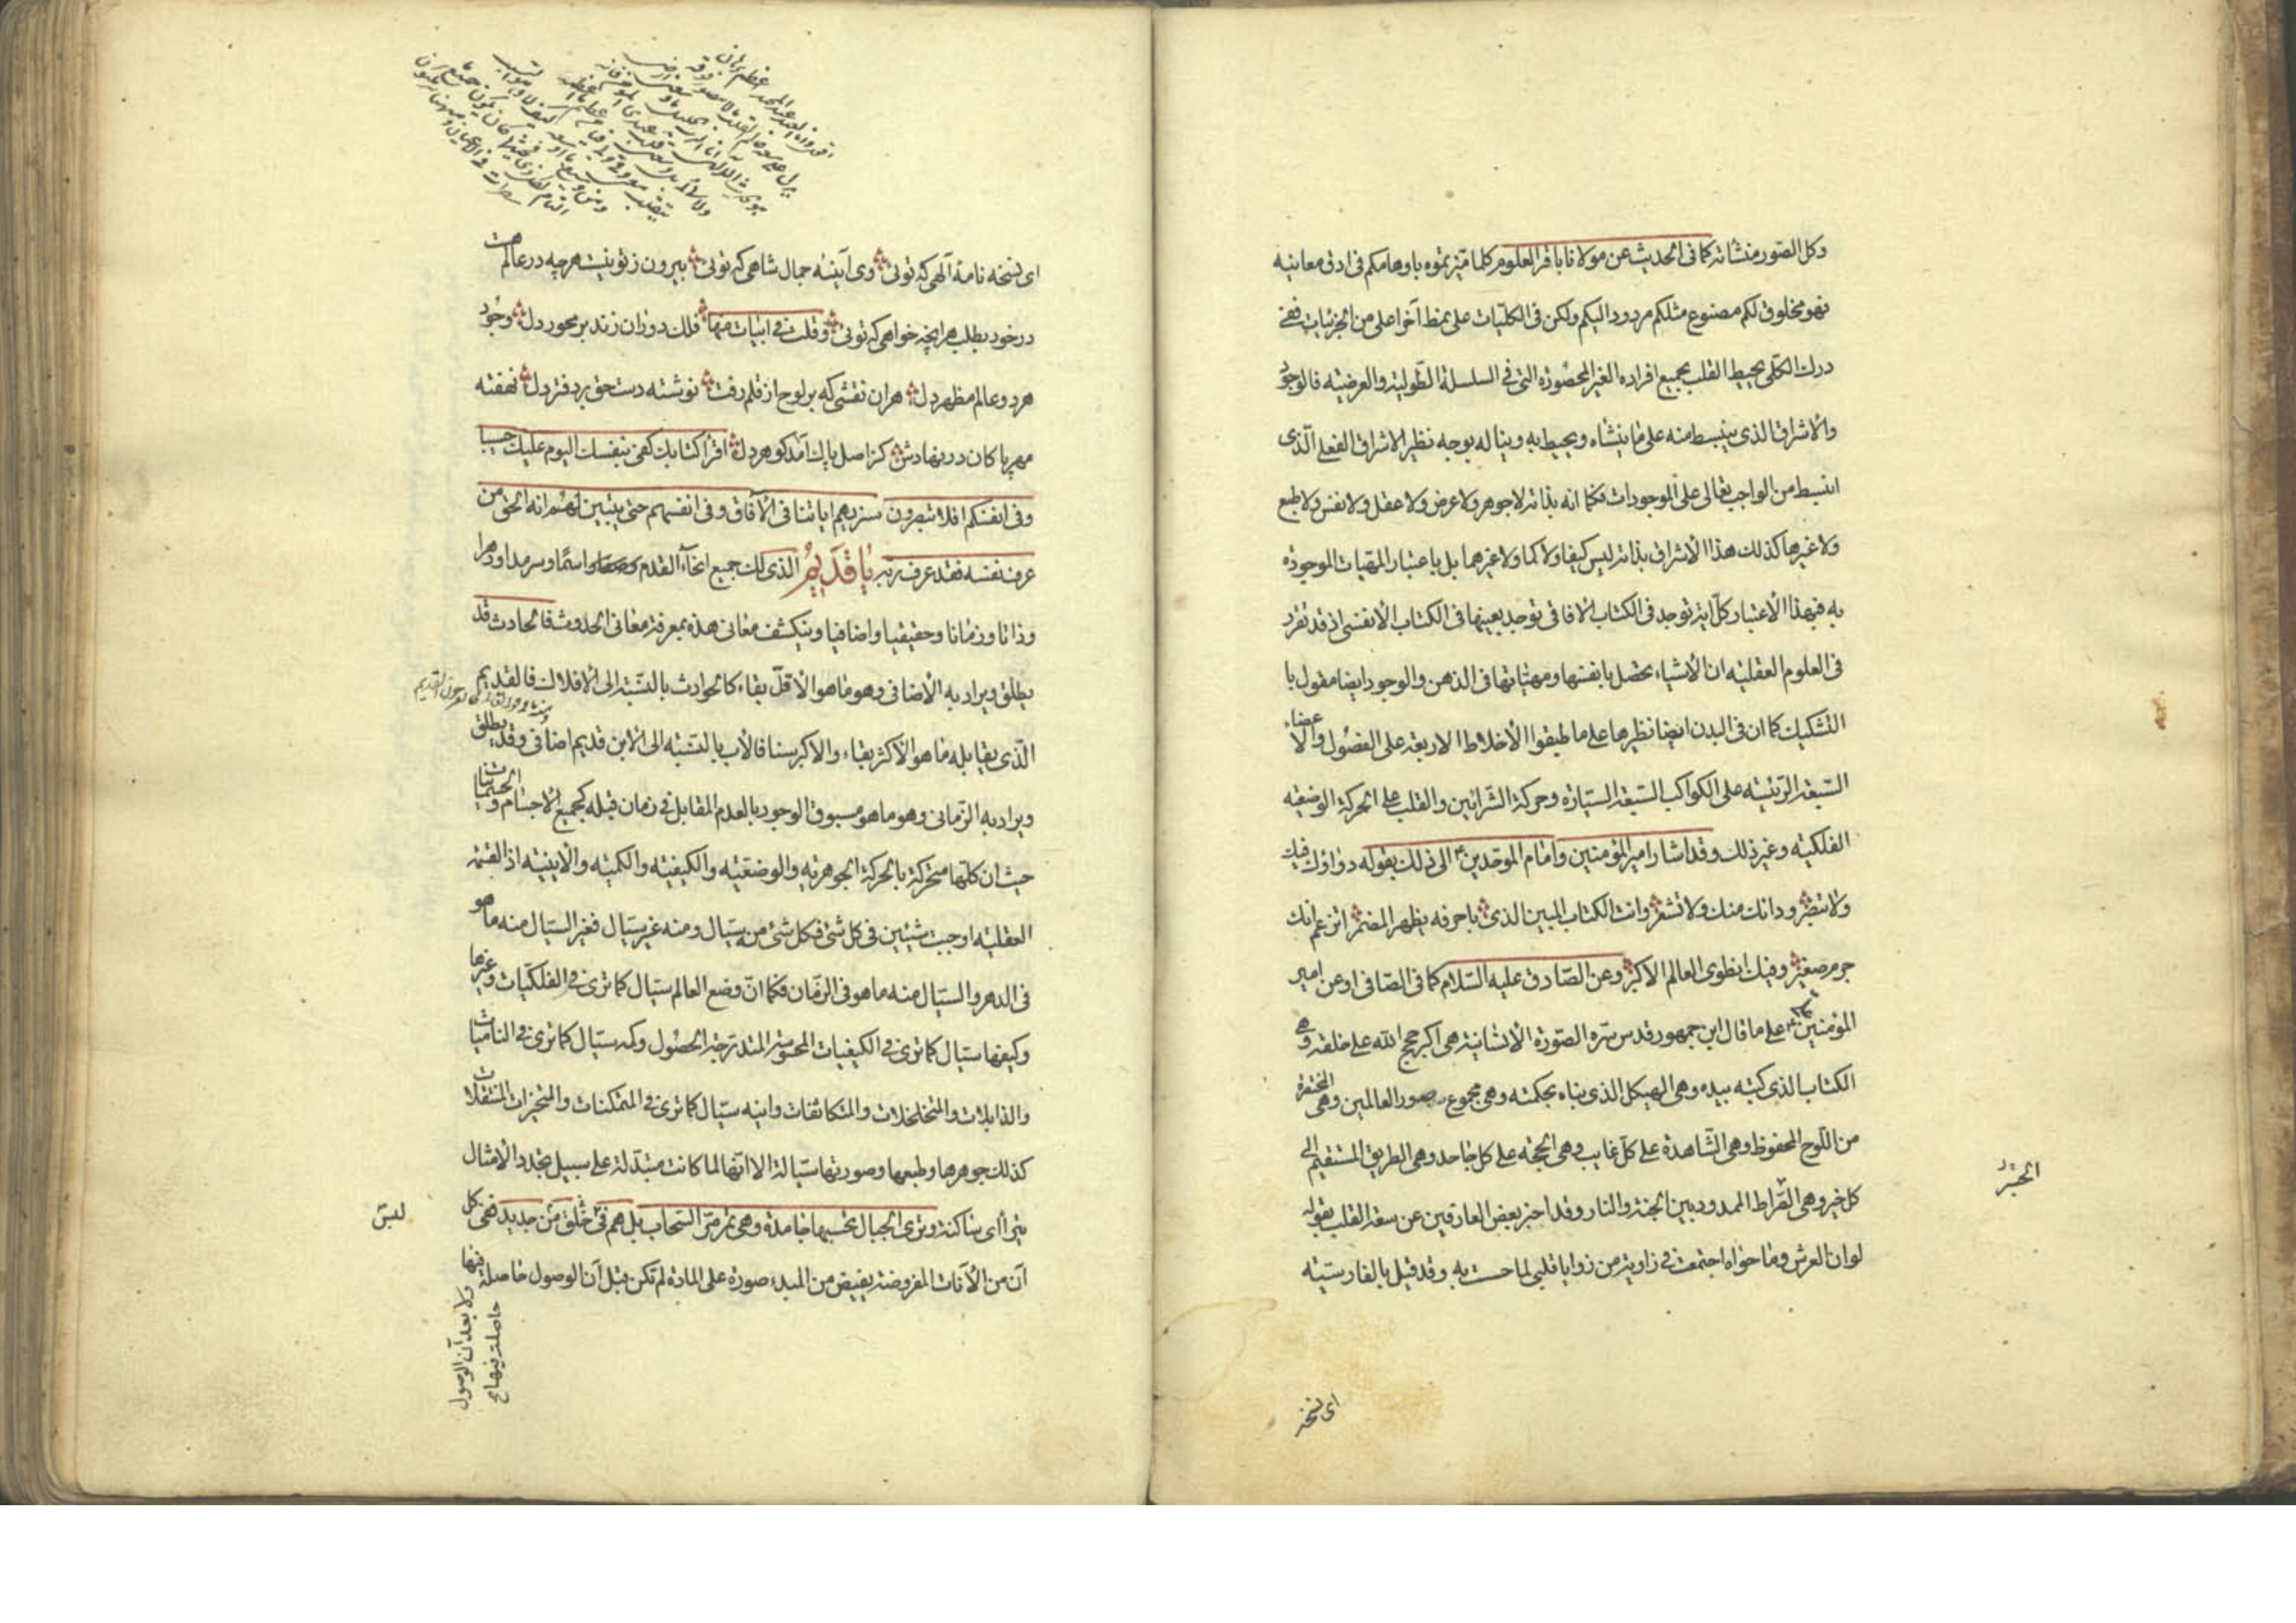 وكل الصور منشئاته كما فى الحديث عن مولانا باقر العلوم كلما ميزتموه باوهامكم فى ادق معانيه
فهو مخلوق لكم مصنوع مثلكم مردود اليكم ولكن فى الكليات على نمط آخر اعلى من الجزئيات ففى
درك الكلى يحيط القلب بجميع افراده الغير المحصورة التى فى السلسلة الطولية والعرضية فالوجود
والاشراق الذى ينبسط منه على ما ينشاه ويحيط به ويناله بوجه نظير الاشراق الفعلى الذى
انبسط من الواجب تعالى على الموجودات فكما انه بذاته لا جوهر ولا عرض ولا عقل ولا نفس ولا طبع
ولا غيرها كذلك هذا الاشراق بذاته ليس كيفا ولا كما ولا غيرهما بل باعتبار المهيات الموجودة
به فبهذا الاعتبار كل اية توجد فى الكتاب الافاقى توجد بعينها فى الكتاب الانفسى اذ قد تقرر
فى العلوم العقلية ان الاشياء تحصل بانفسها ومهياتها فى الذهن والوجود ايضا مقول با
التشكيك كما ان فى البدن ايضا نظيرها على ما طبقوا الاخلاط الاربعة على الفصول والاعضاء
السبعة الرئيسة على الكواكب السبعة السيارة وحركة الشرائين والقلب على الحركة الوضعية
الفلكية وغير ذلك وقد اشار امير المؤمنين وامام الموحدين ع الى ذلك بقوله دواؤك فيك
ولا تبصر وداءك منك ولا تشعر وانت الكتاب المبين الذى باحرفه يظهر المضمر اتزعم انك
جرم صغير وفيك انطوى العالم الاكبر وعن الصادق عليه السلام كما فى الصافى او عن امير
المؤمنين ع على ما قال ابن جمهور قدس سره الصورة الانسانية هى اكبر حجج الله على خلقه وهى
الكتاب الذى كتبه بيده وهى الهيكل الذى بناه بحكمته وهى مجموع صور العالمين وهى المختصرة
من اللوح المحفوظ وهى الشاهدة على كل غايب وهى الحجة على كل جاحد وهى الطريق المستقيم الى
كل خير وهى الصراط الممدود بين الجنة والنار وقد اخبر بعض العارفين عن سعة القلب بقوله
لو ان العرش وما حواه اجتمعت فى زاوية من زوايا قلبى لما حست به وقد قيل بالفارسية
اى نسخه
اى نسخه نامه آلهى كه توئى وى آينه جمال شاهى كه توئى بيرون ز تو نيست هرچه در عالم هست
در خود بطلب هر آنچه خواهى كه توئى وقلت فى ابيات منها فلك دوران زند بر محور دل وجود
هر دو عالم مظهر دل هر آن نقشى كه بر لوح از قلم رفت نوشته دست حق بر دفتر دل نهفته
مهر پاكان در نهادش كز اصل پاك آمد گوهر دل اقرا كتابك كفى بنفسك اليوم عليك حسيبا
وفى انفسكم افلا تبصرون سنريهم اياتنا فى الآفاق وفى انفسهم حتى يتبين لهم انه الحق من
عرف نفسه فقد عرف ربه يا قديم الذى لك جميع انحاء القدم اسما وسرمدا ودهرا
وذاتا وزمانا وحقيقيا واضافيا وينكشف معانى هذه بمعرفة معانى الحدوث فالحادث قد
يطلق ويراد به الاضافى وهو ما هو الاقل بقاء كالحوادث بالنسبة الى الافلاك فالقديم
الذى يقابله ما هو الاكثر بقاء والاكبر سنا فالاب بالنسبة الى الابن قديم اضافى وقد يطلق
ويراد به الزمانى وهو ما هو مسبوق الوجود بالعدم المقابل فى زمان قبله كجميع الاجسام والجسمانيات
حيث ان كلها متحركة بالحركة الجوهرية والوضعية والكيفية والكمية والاينية اذ القسمة
العقلية اوجبت شيئين فى كل شئ فكل شئ منه سيال ومنه غير سيال فغير السيال منه ما هو
فى الدهر والسيال منه ما هو فى الزمان فكما ان وضع العالم سيال كما ترى فى الفلكيات وغيرها
وكيفها سيال كما ترى فى الكيفيات المحسوسة المتدرجة الحصول وكمه سيال كما ترى فى الناميات
والذابلات والمتخلخلات والمتكاثفات واينه سيال كما ترى فى المتمكنات والمتحيزات المنتقلات
كذلك جوهرها وطبعها وصورتها سيالة الا انها لما كانت متبدلة على سبيل تجدد الامثال
يترااى ساكنة وترى الجبال تحسبها جامدة وهى تمر مر السحاب بل هم فى خلق من جديد ففى كل
لبس
آن من الآنات المفروضة يفيض من المبدء صورة على المادة لم تكن قبل آن الوصول حاصلة فيها
ولا بعد آن الوصول
حاصلة فيها